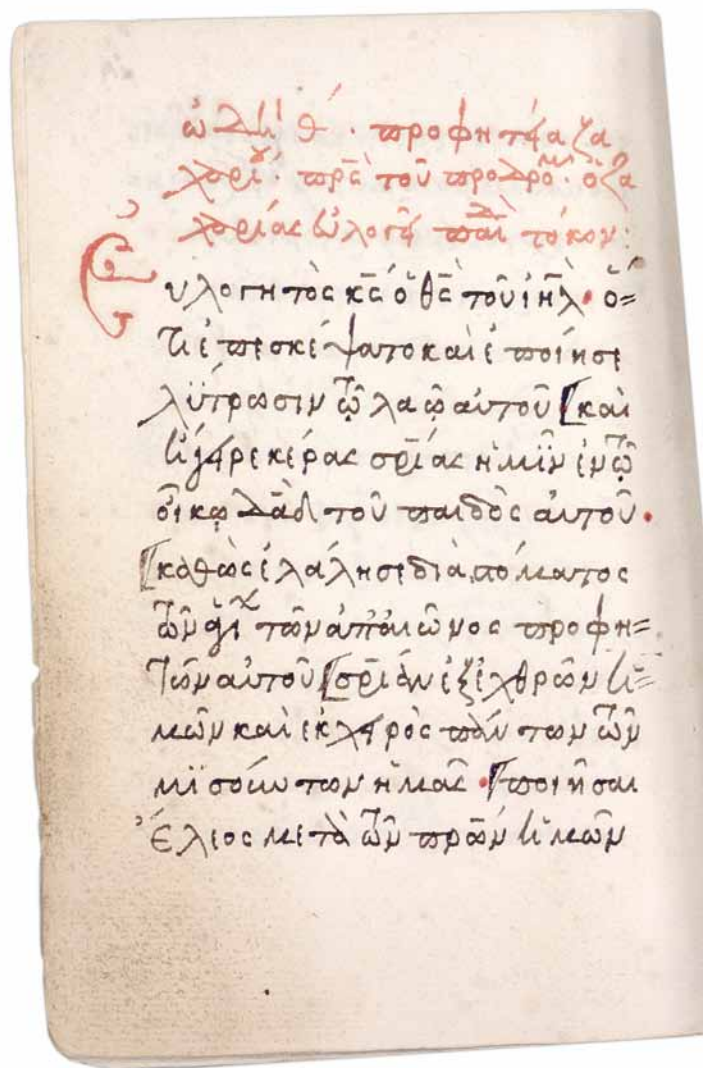 ᾠδὴ θ´· προφήτου ζα
χαρίου· πρ̅ς̅ τοῦ προδρό μ· ὁ ζα
χαρίας εὐλογεῖ παιδ τόκον:
Ευλογητὸς κ̅ς̅ ὁ θ̅ς̅ τοῦ ἰη̅λ̅· ὅ=
τι ἐπεσκέψατο καὶ ἐποίησε
λΰτρωσιν τῷ λαῷ αὐτοῦ· [καὶ
ἤγειρε κέρας σ̅ρ̅ίας ἡμῖν ἐν τῷ
οἴκῳ δ̅α̅δ̅ τοῦ παιδὸς αὐτοῦ·
[καθὼς ἐλάλησε διὰ στόματος
τῶν ἁγί τῶν ἀπαἰῶνος προφη=
τῶν αὐτοῦ [σ̅ρ̅ίαν ἐξ ἐχθρῶν ἡ=
μῶν καὶ ἐκ χειρὸς πάντων τῶν
μισούντων ἡμᾶς· [ποιῆσαι
ἔλεος μετὰ τῶν π̅ρ̅ων ἡμῶν